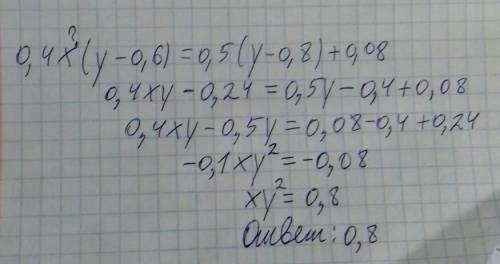 0,4x³(y-0,6)=0,5(y-0,8)+0,08
0,4xy-0,24=0,5y-0,4+0,08
0,4xy-0,5y=0,08-0,4+0,24
-0,1xy²=-0,08
xy²=0,8
Ответ: 0,8